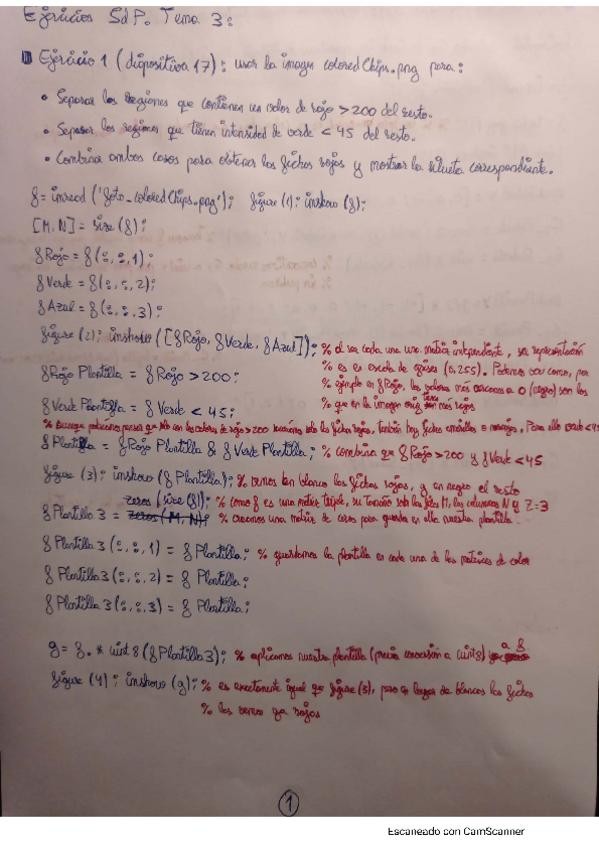 Ejercicios SdP. Tema 3:
Ejercicio 1 (diapositiva 17): usar la imagen coloredChips.png para:
• Separar las regiones que contienen un valor de rojo > 200 del resto.
• Separar las regiones que tienen intensidad de verde < 45 del resto.
• Combina ambos casos para obtener las fichas rojas y mostrar la silueta correspondiente.
f = imread ('foto_coloredChips.png'); figure (1); imshow (f);
[M,N] = size (f);
fRojo = f(:,:,1);
fVerde = f(:,:,2);
fAzul = f(:,:,3);
figure (2); imshow ([fRojo, fVerde, fAzul]); % al ser cada una una matriz independiente, su representación
% es en escala de grises (0,255). Podemos ver como, por
fRojo Plantilla = fRojo > 200; % ejemplo en fRojo, los valores más cercanos a 0 (negro) son los
fVerde Plantilla = fVerde < 45; % que en la imagen orig. son más rojos
% Aunque podríamos pensar que solo con los valores de rojo > 200 tendríamos solo las fichas rojas, también hay fichas amarillas o naranjas. Para ello verde < 45
fPlantilla = fRojo Plantilla & fVerde Plantilla; % combina que fRojo > 200 y fVerde < 45
figure (3); imshow (fPlantilla); % vemos en blanco las fichas rojas, y en negro el resto
zeros (size (f)); % como f es una matriz triple, su tamaño son las filas M, las columnas N y Z=3
fPlantilla 3 = zeros (M,N); % creamos una matriz de ceros para guardar en ella nuestra plantilla.
fPlantilla 3 (:,:,1) = fPlantilla; % guardamos la plantilla en cada una de las matrices de color
fPlantilla 3 (:,:,2) = fPlantilla;
fPlantilla 3 (:,:,3) = fPlantilla;
g = f .* uint8 (fPlantilla 3); % aplicamos nuestra plantilla (previa conversión a uint8) a f
figure (4); imshow (g); % es exactamente igual que figure (3), pero en lugar de blancas las fichas
% las vemos ya rojas
1
Escaneado con CamScanner